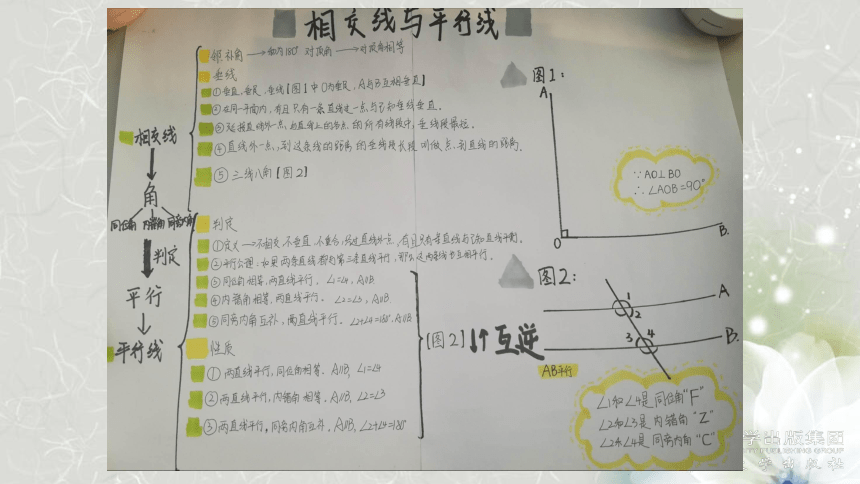 相交线与平行线
邻补角→和为180° 对顶角→对顶角相等
垂线
①垂直,垂足,垂线【图1中O为垂足,A与B互相垂直】
②在同一平面内,有且只有一条直线过一点与已知直线垂直。
③连接直线外一点,与直线上的各点的所有线段中,垂线段最短。
④直线外一点,到这条线的距离的垂线段长度叫做点到直线的距离。
⑤三线八角【图2】
相交线
角
同位角 内错角 同旁内角
判定
平行
平行线
判定
①定义→不相交,不垂直,不重合,经过直线外一点,有且只有一条直线与已知直线平行。
②平行公理:如果两条直线都与第三条直线平行,那么这两条线也互相平行。
③同位角相等,两直线平行。∠1=∠4,A∥B
④内错角相等,两直线平行。∠2=∠3,A∥B
⑤同旁内角互补,两直线平行。∠2+∠4=180°,A∥B
性质
①两直线平行,同位角相等。A∥B,∠1=∠4
②两直线平行,内错角相等。A∥B,∠2=∠3
③两直线平行,同旁内角互补,A∥B,∠2+∠4=180°
[图2]↓↑互逆
图1:
A
O
B.
∵AO⊥BO
∴∠AOB=90°
图2:
1
2
A
3
4
B.
AB平行
∠1和∠4是同位角"F"
∠2和∠3是内错角"Z"
∠2和∠4是同旁内角"C"
学出版集团